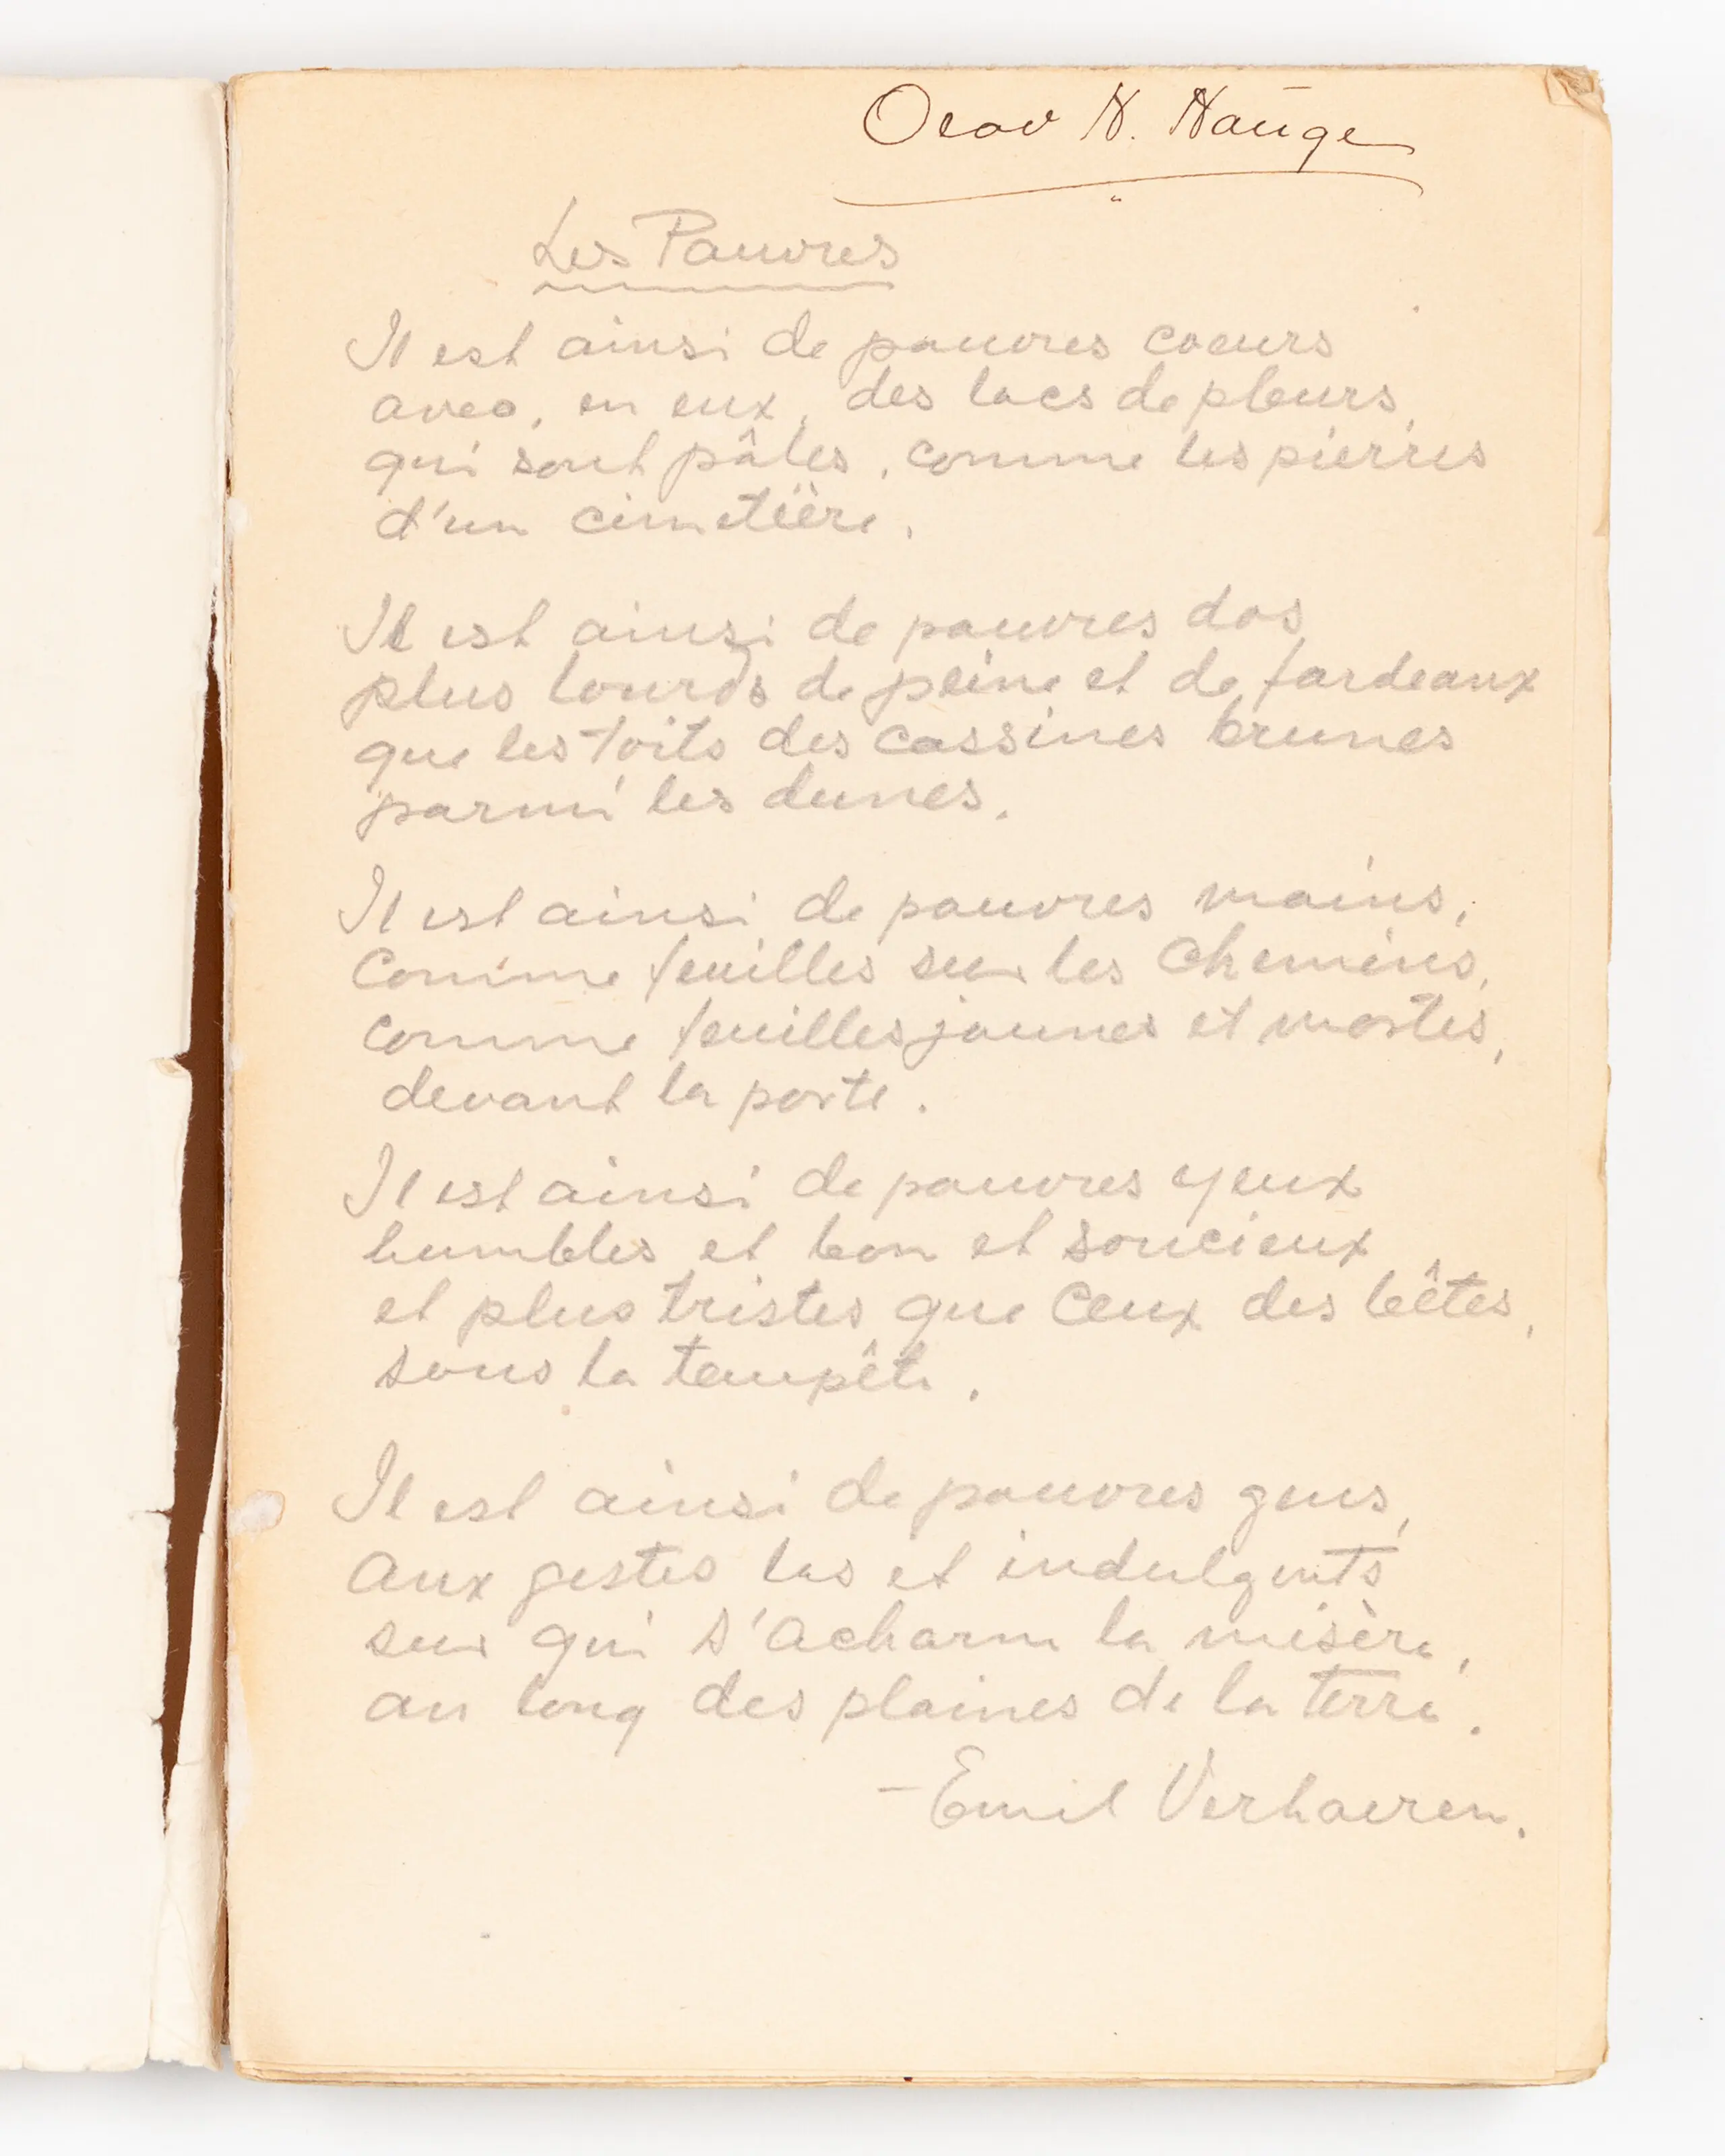 Olav H. Hauge
Les Pauvres
Il est ainsi de pauvres coeurs
avec, en eux, des lacs de pleurs,
qui sont pâles, comme les pierres
d'un cimetière.
Il est ainsi de pauvres dos
plus lourds de peine et de fardeaux
que les toits des cassines brunes
parmi les dunes.
Il est ainsi de pauvres mains,
Comme feuilles sur les chemins,
comme feuilles jaunes et mortes,
devant la porte.
Il est ainsi de pauvres yeux
humbles et bon et soucieux
et plus tristes que ceux des bêtes,
sous la tempête.
Il est ainsi de pauvres gens,
aux gestes las et indulgents
sur qui s'acharne la misère,
au long des plaines de la terre.
– Emil Verhaeren.